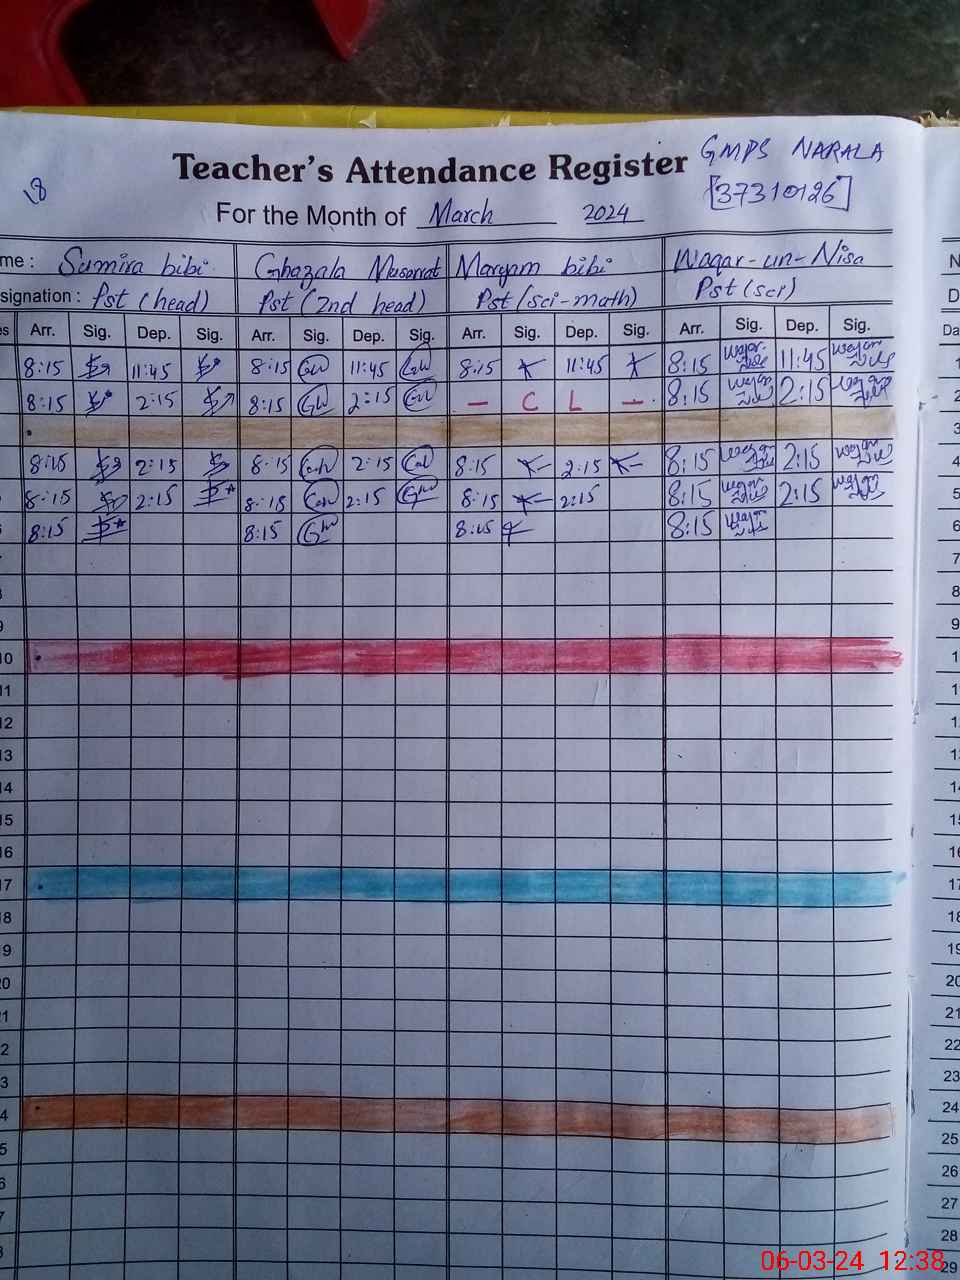 18
Teacher's Attendance Register GMPS NARALA
[37310126]
For the Month of March 2024
me : Sumira bibi Ghazala Musarrat Maryam bibi Waqar-un-Nisa
signation : Pst (head) Pst (2nd head) Pst (sci-math) Pst (sci)
es Arr. Sig. Dep. Sig. Arr. Sig. Dep. Sig. Arr. Sig. Dep. Sig. Arr. Sig. Dep. Sig. Da
8:15 11:45 8:15 11:45 8:15 11:45 8:15 11:45 1
8:15 2:15 8:15 2:15 - C L - 8:15 2:15 2
3
8:15 2:15 8:15 2:15 8:15 2:15 8:15 2:15 4
8:15 2:15 8:15 2:15 8:15 2:15 8:15 2:15 5
8:15 8:15 8:15 8:15 6
7
8
9 9
10 1
11 11
12 12
13 13
14 14
15 15
16 16
17 17
18 18
19 19
20 20
21 21
2 22
3 23
4 24
5 25
6 26
7 27
8 28
29
06-03-24 12:38